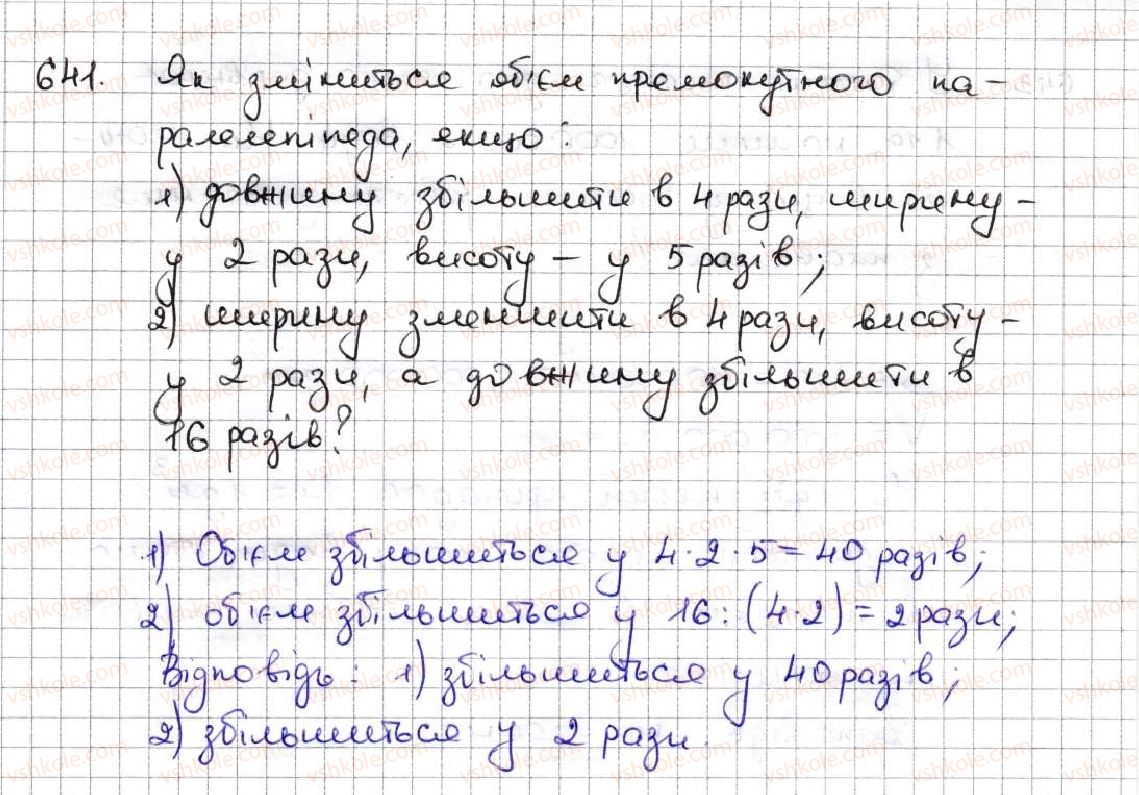 641. Як зміниться об'єм прямокутного па-
ралелепіпеда, якщо:
1) довжину збільшити в 4 рази, ширину -
у 2 рази, висоту - у 5 разів;
2) ширину зменшити в 4 рази, висоту -
у 2 рази, а довжину збільшити в
16 разів?
1) Об'єм збільшиться у 4·2·5=40 разів;
2) об'єм збільшиться у 16:(4·2)=2 рази;
Відповідь: 1) збільшиться у 40 разів;
2) збільшиться у 2 рази.